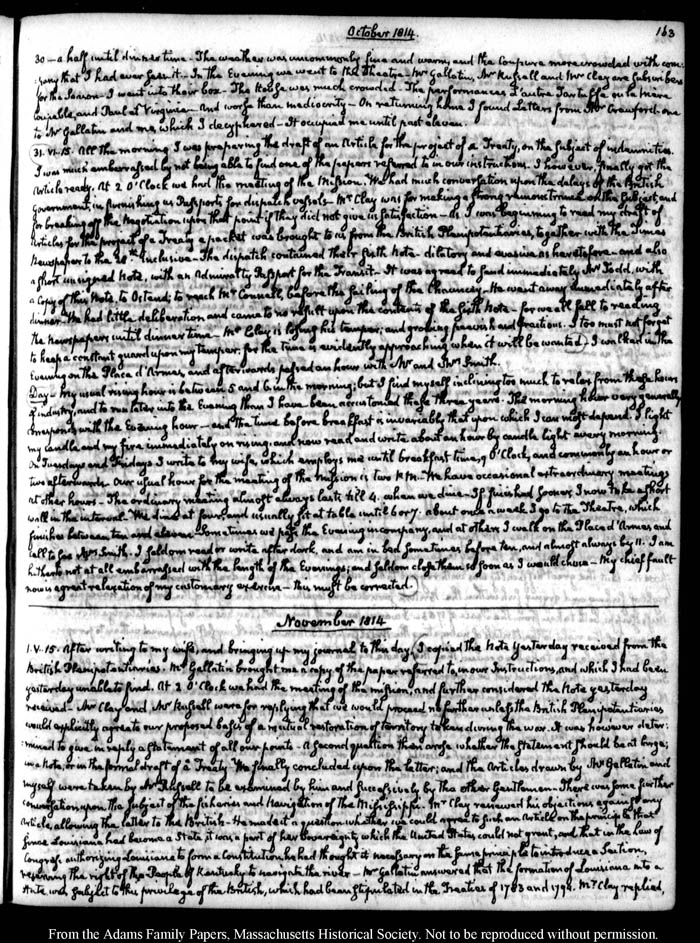 October 1814.
163
30 — a half until dinner time - The weather was uncommonly fine and warm, and the Coupure more crowded with com:
:pany that I had ever seen it. - In the Evening we went to the Theatre - Mr Gallatin, Mr Russell and Mr Clay are subscribers
for the season - I went into their box - The House was much crowded - The performances L'autre Tartuffe ou la Mere
coupable, and Paul et Virginie - and worse than mediocrity - On returning home I found Letters from Mr Crawford - one
to Mr Gallatin and me, which I decyphered - It occupied me until past eleven.
31. VI. 15. All the morning I was preparing the draft of an Article for the project of a Treaty, on the subject of indemnities.
I was much embarrassed by not being able to find one of the papers referred to in our instructions. I however finally got the
Article ready. At 2 O'Clock we had the meeting of the Mission. We had much conversation upon the delays of the British
Government, in furnishing us Passports for dispatch vessels - Mr Clay was for making a strong remonstrance on the subject, and
for breaking off the Negotiation upon that point if they did not give us satisfaction - as I was beginning to read my draft of
Articles for the project of a Treaty a packet was brought to us from the British Plenipotentiaries, together with the Times
Newspaper to the 28th inclusive - The dispatch contained their sixth Note - dilatory and evasive as heretofore - and also
a short unsigned Note, with an Admiralty Passport for the Transit - It was agreed to send immediately Mr Todd, with
a Copy of this Note, to Ostend, to reach Mr Connell, before the sailing of the Chauncey. He went away immediately after
dinner. We had little deliberation and came to no result upon the contents of the sixth Note - for we all fell to reading
the Newspapers until dinner time - Mr Clay is losing his temper, and growing peevish and fractious. I too must not forget
to keep a constant guard upon my temper, for the time is evidently approaching when it will be wanted) I walked in the
Evening on the Place d'Armes, and afterwards passed an hour with Mr and Mrs Smith.
Day - My usual rising hour is between 5 and 6 in the morning; but I find myself inclining too much to relax from these hours
of industry, and to run later into the Evening than I have been accustomed these three years. The morning hour very generally
corresponds with the Evening hour - and the time before breakfast is invariably that upon which I can most depend. I light
my candle and my fire immediately on rising, and now read and write about an hour by candle light every morning.
On Tuesdays and Fridays I write to my wife, which employs me until breakfast time, 9 O'Clock, and commonly an hour or
two afterwards. Our usual hour for the meeting of the mission is two P.M. - We have occasional extraordinary meetings
at other hours - The ordinary meeting almost always lasts till 4. when we dine - If finished sooner I now take a short
walk in the interval. We dine at four, and usually sit at table until 6 or 7. about once a week I go to the Theatre, which
finishes between ten and eleven. Sometimes we pass the Evening in company, and at others I walk on the Place d'Armes, and
call to see Mrs Smith. I seldom read or write after dark, and am in bed sometimes before ten, and almost always by 11. I am
hitherto not at all embarrassed with the length of the Evenings; and seldom close them so soon as I would chuse - My chief fault
now is a great relaxation of my customary exercise - this must be corrected)
November 1814
1. V. 15. After writing to my wife, and bringing up my journal to this day (I copied the Note yesterday received from the
British Plenipotentiaries. Mr Gallatin brought me a copy of the paper referred to in our Instructions, and which I had been
yesterday unable to find. At 2 O'Clock we had the meeting of the mission, and further considered the Note yesterday
received - Mr Clay and Mr Russell were for replying that we would proceed no further unless the British Plenipotentiaries
would explicitly agree to our proposed basis of a mutual restoration of territory taken during the war. It was however deter:
:mined to give in reply a statement of all our points - A second question then arose whether the statement should be at large,
in a Note, or in the formal draft of a Treaty. We finally concluded upon the latter; and the Articles drawn by Mr Gallatin and
myself were taken by Mr Russell to be examined by him and successively by the other Gentlemen - There was some further
conversation upon the subject of the fisheries and Navigation of the Mississippi. Mr Clay renewed his objections against any
Article, allowing the latter to the British - He made it a question whether we could agree to such an Article on the principle that
since Louisiana had become a State, it was a part of her sovereignty which the United States could not grant, and that in the Law of
Congress authorizing Louisiana to form a Constitution, he had thought it necessary on the same principle to introduce a Section,
reserving the right of the People of Kentucky to navigate the river - Mr Gallatin answered that the formation of Louisiana into a
State was subject to this privilege of the British, which had been stipulated in the Treaties of 1783 and 1794. Mr Clay replied,
From the Adams Family Papers, Massachusetts Historical Society. Not to be reproduced without permission.